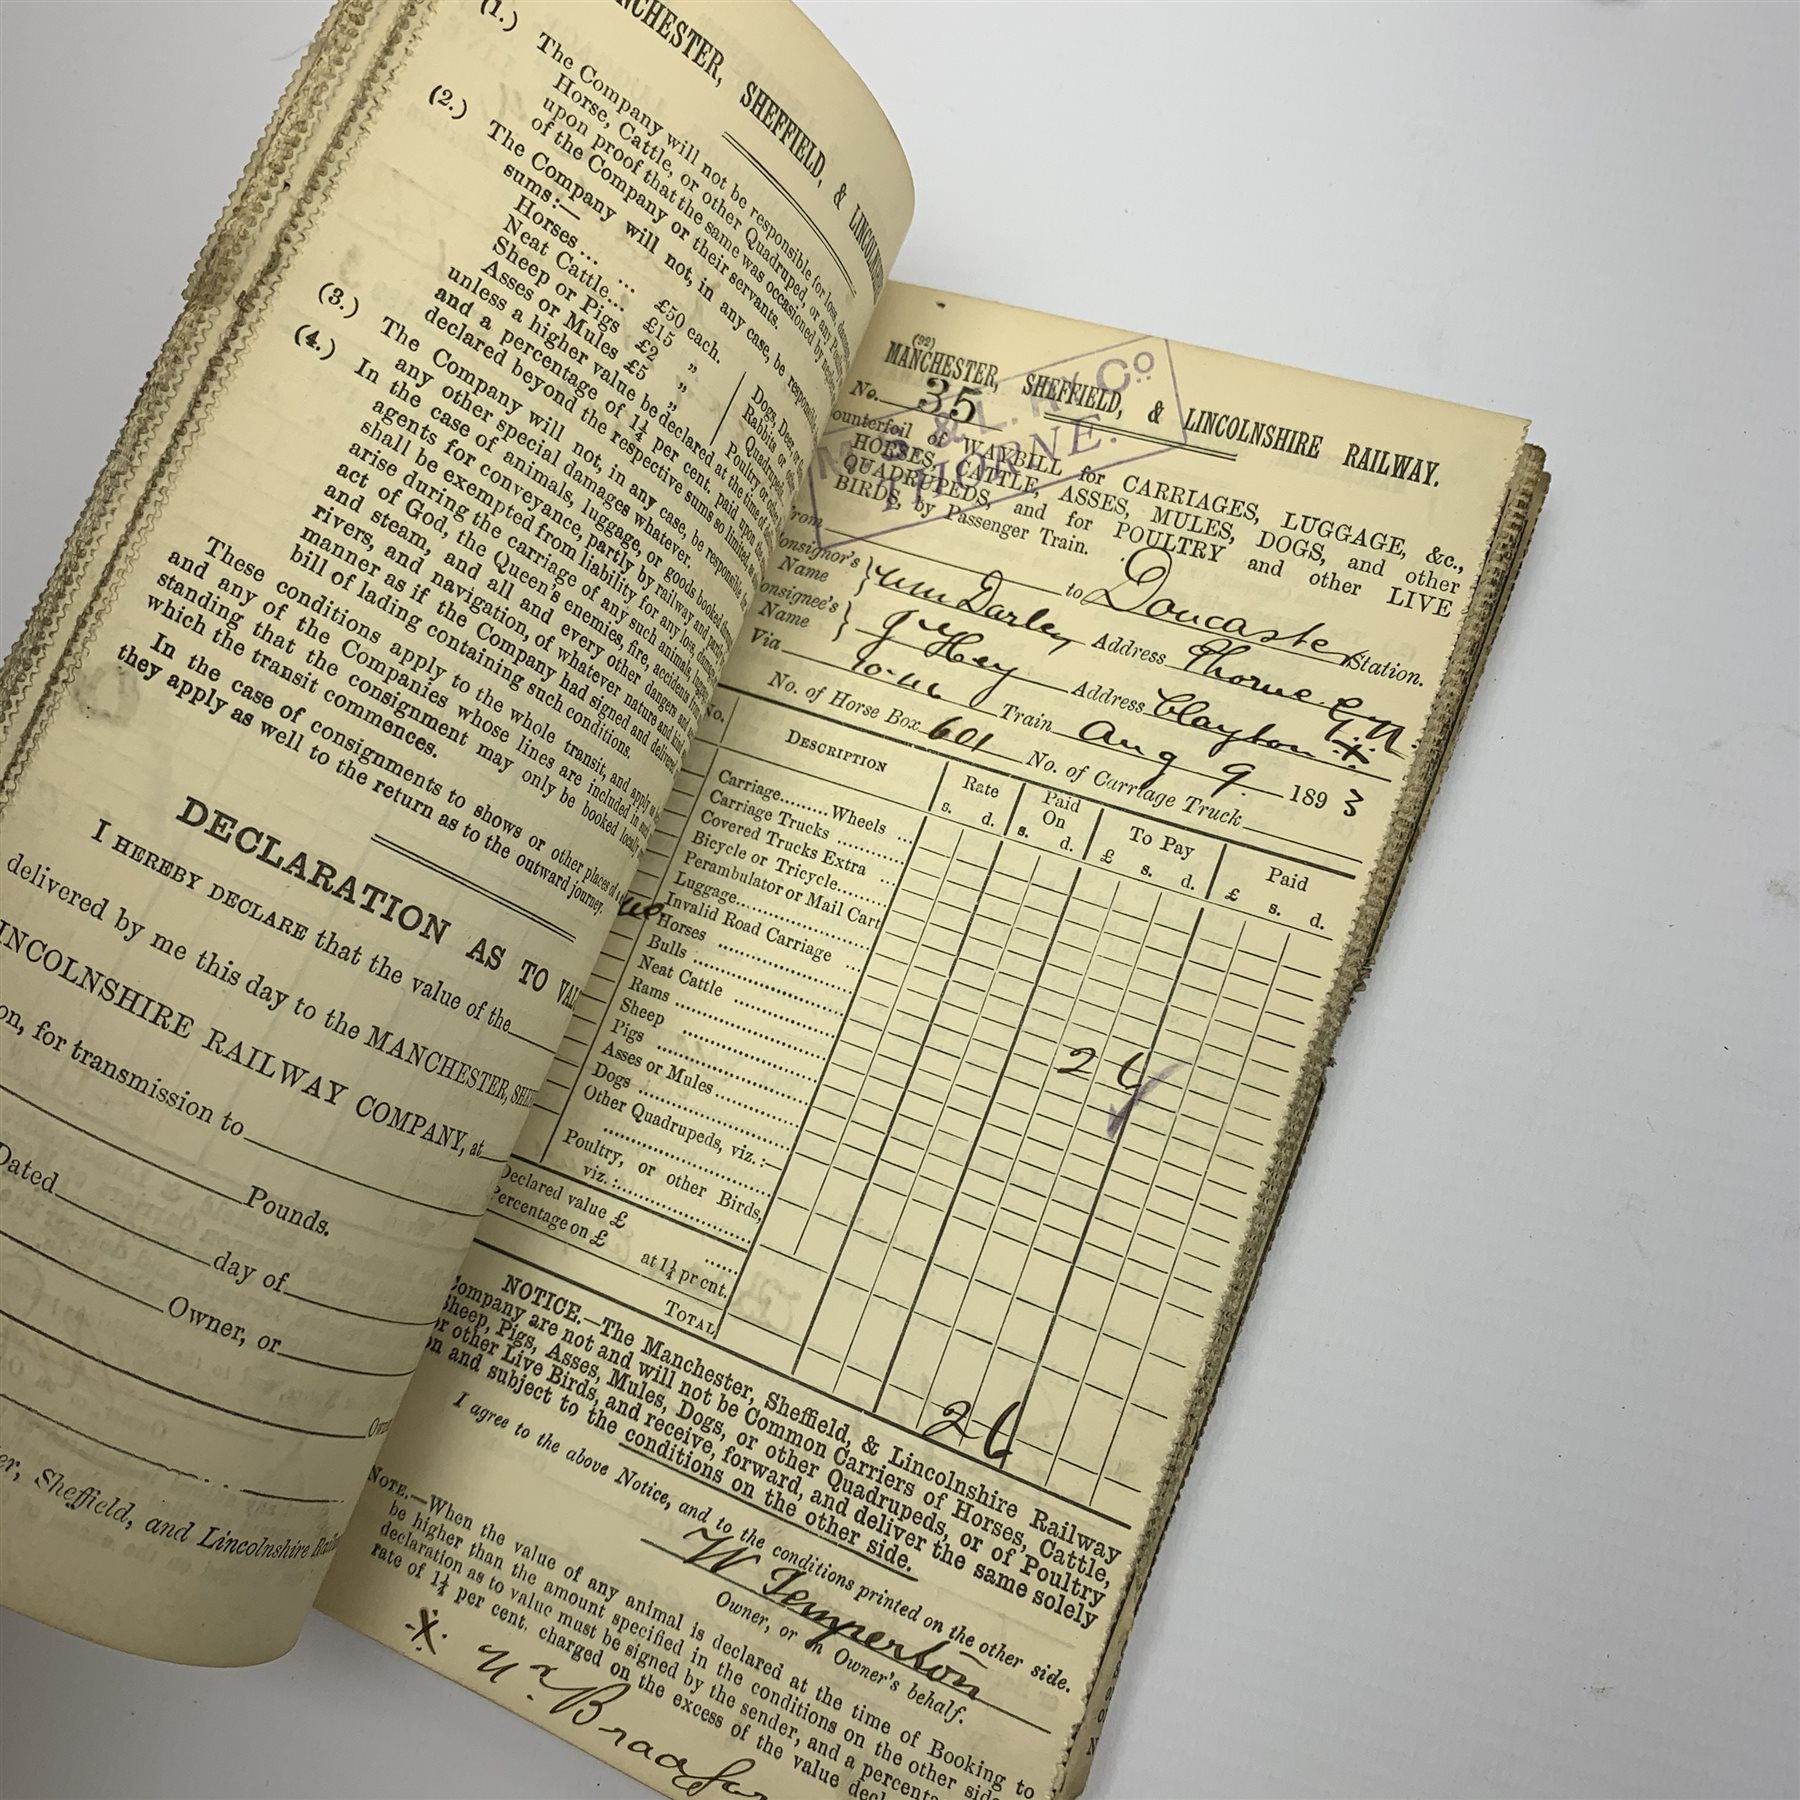 NCHESTER, SHEFFIELD, & LINCOLNSHIRE
(1.) The Company will not be responsible for loss,
Horse, Cattle, or other Quadruped, or any
upon proof that the same was occasioned by
of the Company or their servants.
(2.) The Company will not, in any case, be responsible
sums:—
Horses ... ... £50 each.
Neat Cattle... £15 „
Sheep or Pigs £2 „
Asses or Mules £5 „
Dogs, Deer,
Rabbits or
Quadruped,
Poultry or other
unless a higher value be declared at the time of
and a percentage of 1¼ per cent. paid upon the
declared beyond the respective sums so limited,
(3.) The Company will not, in any case, be responsible for
any other special damages whatever.
(4.) In the case of animals, luggage, or goods booked
agents for conveyance, partly by railway and partly
shall be exempted from liability for any loss,
arise during the carriage of any such animals,
act of God, the Queen's enemies, fire, accidents from
and steam, and all and every other dangers and
rivers, and navigation, of whatever nature and kind
manner as if the Company had signed and delivered
bill of lading containing such conditions.
These conditions apply to the whole transit, and apply
and any of the Companies whose lines are included in
standing that the consignment may only be booked locally
which the transit commences.
In the case of consignments to shows or other places
they apply as well to the return as to the outward journey.
DECLARATION AS TO VAL
I HEREBY DECLARE that the value of the
delivered by me this day to the MANCHESTER, SHE
INCOLNSHIRE RAILWAY COMPANY, at
on, for transmission to
Pounds.
Dated day of
Owner, or
er, Sheffield, and Lincolnshire
(92)
MANCHESTER, SHEFFIELD, & LINCOLNSHIRE RAILWAY.
M. S. & L. Ry Co
THORNE.
No. 35
ounterfoil of WAYBILL for CARRIAGES, LUGGAGE, &c.,
HORSES, CATTLE, ASSES, MULES, DOGS, and other
QUADRUPEDS, and for POULTRY and other LIVE
BIRDS, by Passenger Train.
From to Doncaster Station.
onsignor's Name } Wm Darley Address Thorne
onsignee's Name } Hey Address Clayton
Via Train Aug 9 1893
No. of Horse Box 601 No. of Carriage Truck
No. DESCRIPTION Rate Paid On To Pay Paid
s. d. s. d. £ s. d. £ s. d.
Carriage.........Wheels ..
Carriage Trucks
Covered Trucks Extra ...
Bicycle or Tricycle
Perambulator or Mail Cart
Luggage
Invalid Road Carriage ...
Horses
Bulls
Neat Cattle
Rams
Sheep
Pigs
Asses or Mules
Dogs
Other Quadrupeds, viz.:—
Poultry, or other Birds,
viz.:
Declared value £
Percentage on £ at 1¼ pr cnt.
TOTAL
2 6
2 6
NOTICE.—The Manchester, Sheffield, & Lincolnshire Railway
Company are not and will not be Common Carriers of Horses, Cattle,
Sheep, Pigs, Asses, Mules, Dogs, or other Quadrupeds, or of Poultry
or other Live Birds, and receive, forward, and deliver the same solely
on and subject to the conditions on the other side.
I agree to the above Notice, and to the conditions printed on the other side.
W Temperton
Owner, or on Owner's behalf.
NOTE.—When the value of any animal is declared at the time of Booking to
be higher than the amount specified in the conditions on the other side
declaration as to value must be signed by the sender, and a percenta
rate of 1¼ per cent. charged on the excess of the value decl